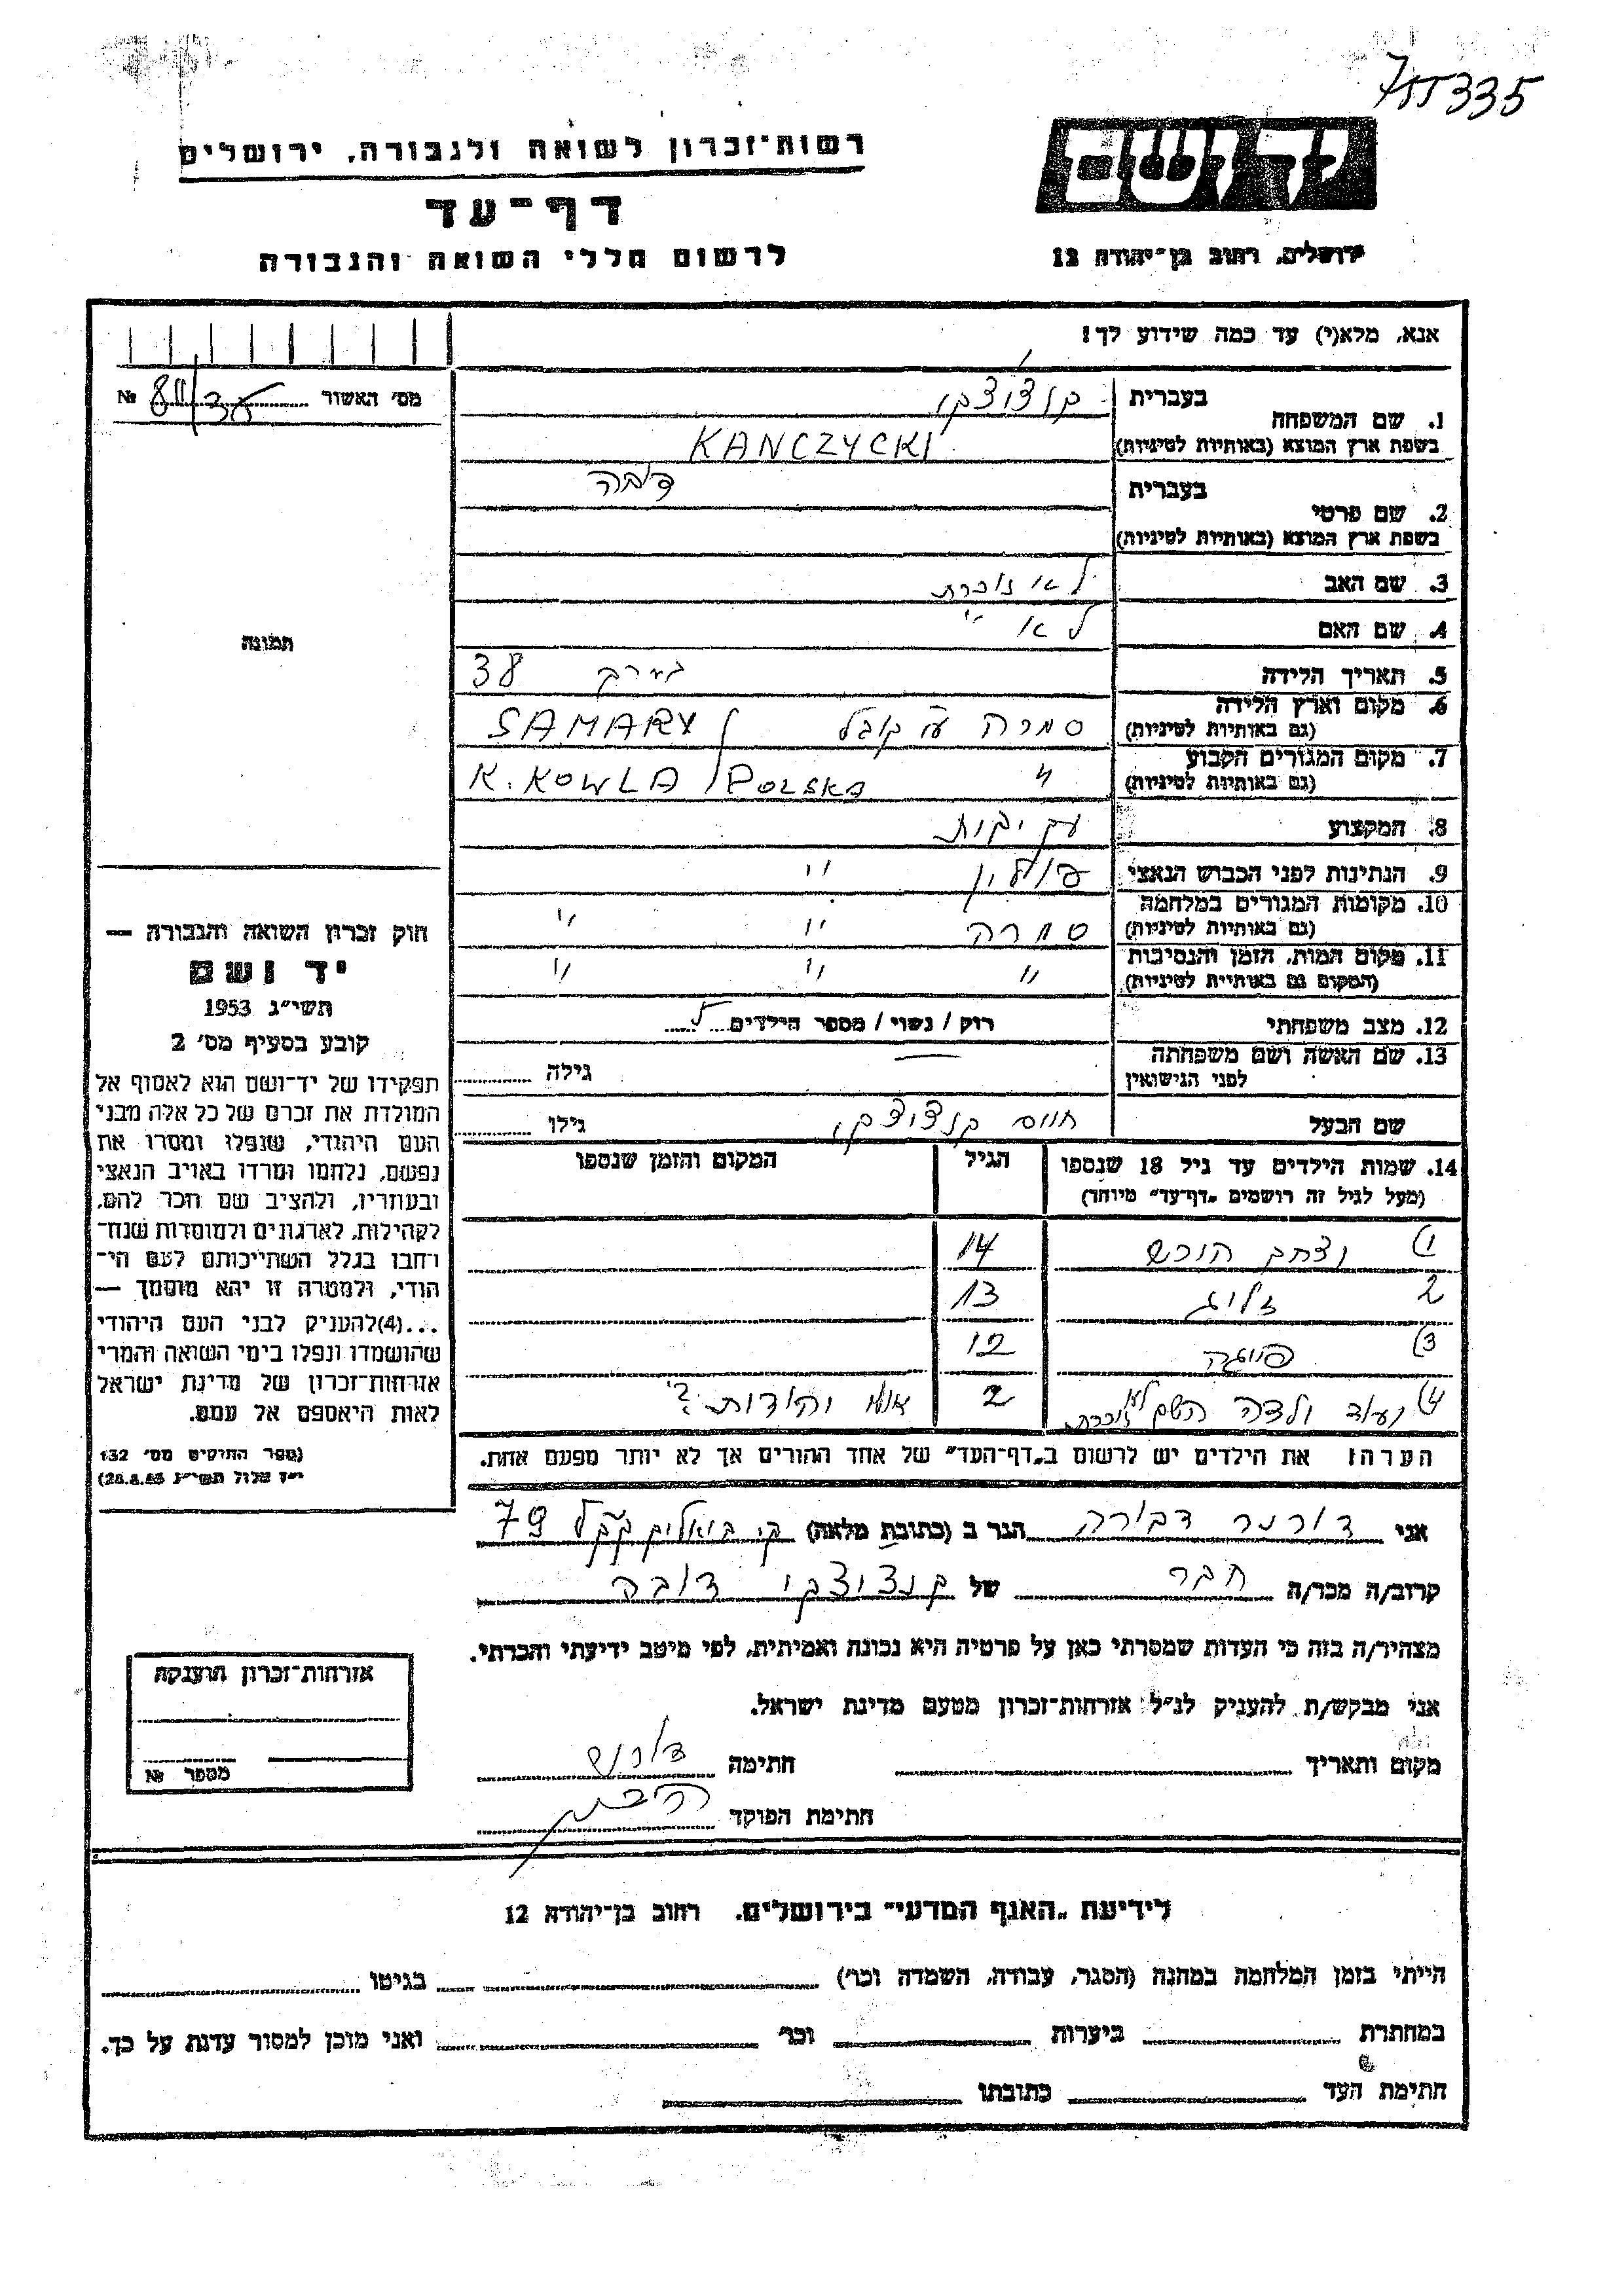 רשות־זכרון לשואה ולגבורה, ירושלים
דף־עד
לרשום חללי השואה והגבורה
יד ושם
ירושלים, רחוב בן־יהודה 12
אנא, מלא(י) עד כמה שידוע לך!
מס׳ האשור №
1. שם המשפחה
בעברית קנציצקי
בשפת ארץ המוצא (באותיות לטיניות) KANCZYCKI
2. שם פרטי
בעברית דובה
בשפת ארץ המוצא (באותיות לטיניות)
3. שם האב לא זוכרת
4. שם האם לא ״
5. תאריך הלידה בערך 38
6. מקום וארץ הלידה (גם באותיות לטיניות) סמרה ע״י קובל SAMARY
7. מקום המגורים הקבוע (גם באותיות לטיניות) ״ K. KOWLA / POLSKA
8. המקצוע עק׳ בית
9. הנתינות לפני הכבוש הנאצי פולין ״
10. מקומות המגורים במלחמה (גם באותיות לטיניות) סמרה ״ ״
11. מקום המות, הזמן והנסיבות (המקום גם באותיות לטיניות) ״ ״ ״
12. מצב משפחתי רוק / נשוי / מספר הילדים 5
13. שם האשה ושם משפחתה לפני הנישואין גילה
שם הבעל חיים קנציצקי גילו
14. שמות הילדים עד גיל 18 שנספו (מעל לגיל זה רושמים „דף־עד״ מיוחד) הגיל המקום והזמן שנספו
1) יצחק הירש 14
2 זליג 13
3) פייגה 12
4) ועוד ילדה השם לא זוכרת 2
הערה: את הילדים יש לרשום ב„דף־העד״ של אחד ההורים אך לא יותר מפעם אחת.
אני דורנר דבורה הגר ב (כתובת מלאה) 79
קרוב/ה מכר/ה חבר של קנציצקי דובה
מצהיר/ה בזה כי העדות שמסרתי כאן על פרטיה היא נכונה ואמיתית, לפי מיטב ידיעתי והכרתי.
אני מבקש/ת להעניק לנ״ל אזרחות־זכרון מטעם מדינת ישראל.
מקום ותאריך חתימה
חתימת הפוקד
תמונה
חוק זכרון השואה והגבורה —
יד ושם
תשי״ג 1953
קובע בסעיף מס׳ 2
תפקידו של יד־ושם הוא לאסוף אל
המולדת את זכרם של כל אלה מבני
העם היהודי, שנפלו ומסרו את
נפשם, נלחמו ומרדו באויב הנאצי
ובעוזריו, ולהציב שם וזכר להם,
לקהילות, לארגונים ולמוסדות שנח־
רחבו בגלל השתייכותם לעם הי־
הודי, ולמטרה זו יהא מוסמך —
...(4)להעניק לבני העם היהודי
שהושמדו ונפלו בימי השואה והמרי
אזרחות־זכרון של מדינת ישראל
לאות היאספם אל עמם.
(ספר החוקים מס׳ 132
אזרחות־זכרון הוענקה
מספר №
לידיעת „האגף המדעי״ בירושלים, רחוב בן־יהודה 12
הייתי בזמן המלחמה במחנה (הסגר, עבודה, השמדה וכו׳) בגיטו
במחתרת ביערות וכו׳ ואני מוכן למסור עדות על כך.
חתימת העד כתובתו